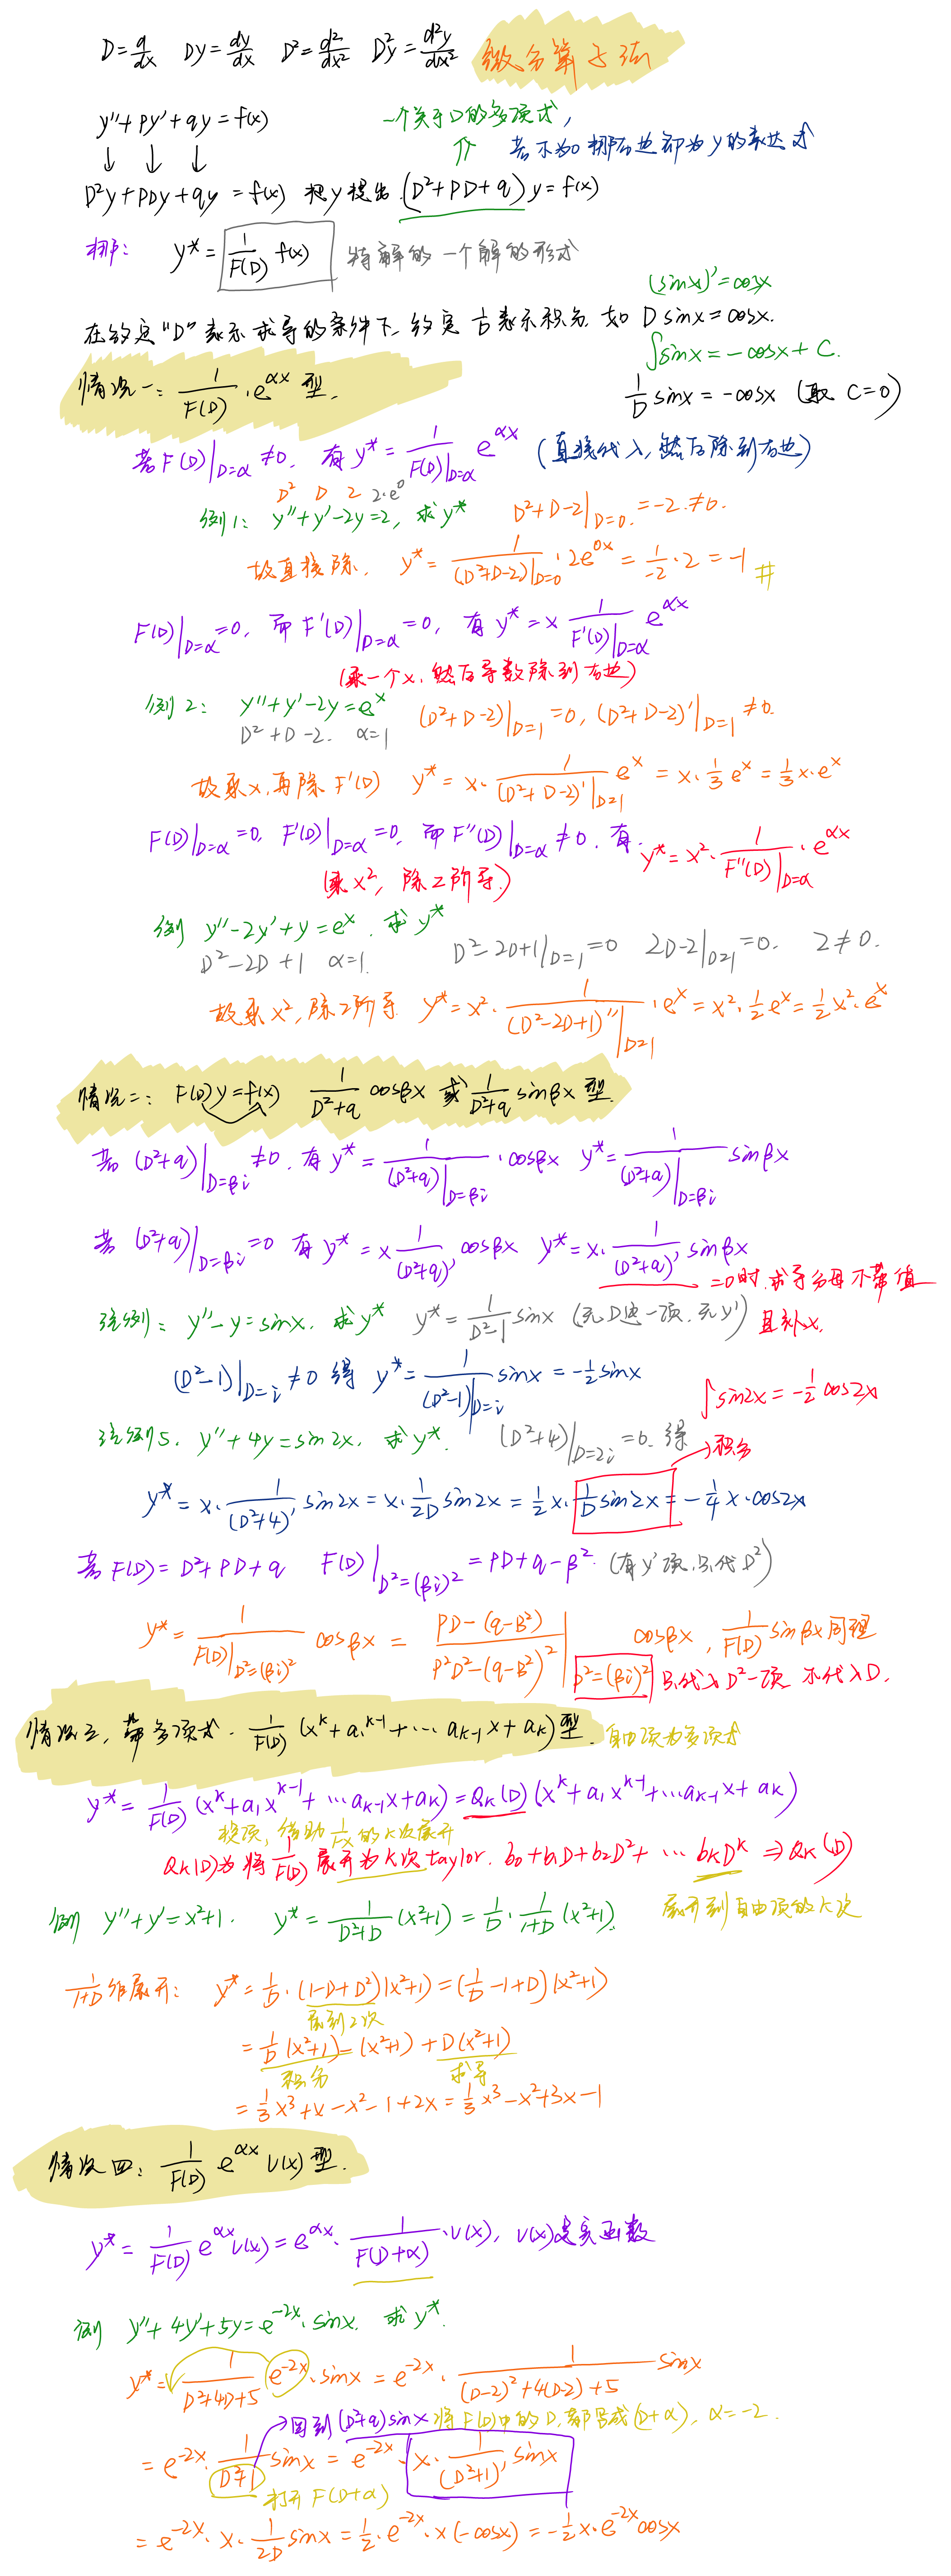 D=d/dx  Dy=dy/dx  D²=d²/dx²  D²y=d²y/dx²  微分算子法
y''+Py'+qy=f(x)  一个关于D的多项式,
↓ ↓ ↓  ⇑ 若不为0挪右边即为y的表达式
D²y+PDy+qy=f(x) 把y提出 (D²+PD+q)y=f(x)
挪: y*=1/F(D) f(x) 特解的一个解的形式
(sinx)'=cosx
在约定"D"表示求导的条件下,约定 1/D 表示积分,如 D sinx=cosx.
∫sinx=-cosx+C.
情况一: 1/F(D)·e^{αx} 型.
1/D sinx=-cosx (取 C=0)
若F(D)|_{D=α}≠0, 有y*=1/F(D)|_{D=α} e^{αx} (直接代入,然后除到右边)
D² D 2 2·e⁰
例1: y''+y'-2y=2, 求y*  D²+D-2|_{D=0}=-2≠0.
故直接除, y*=1/(D²+D-2)|_{D=0}·2e^{0x}=1/-2·2=-1 #
F(D)|_{D=α}=0, 而F'(D)|_{D=α}=0, 有y*=x 1/F'(D)|_{D=α} e^{αx}
(乘一个x,然后导数除到右边)
例2: y''+y'-2y=e^x  (D²+D-2)|_{D=1}=0, (D²+D-2)'|_{D=1}≠0.
D²+D-2. α=1
故乘x,再除F'(D) y*=x·1/(D²+D-2)'|_{D=1} e^x=x·1/3 e^x=1/3 x·e^x
F(D)|_{D=α}=0, F'(D)|_{D=α}=0, 而F''(D)|_{D=α}≠0, 有. y*=x²·1/F''(D)|_{D=α}·e^{αx}
(乘x², 除2阶导)
例 y''-2y'+y=e^x. 求y*
D²-2D+1 α=1.  D²-2D+1|_{D=1}=0  2D-2|_{D=1}=0.  2≠0.
故乘x²,除2阶导 y*=x²·1/(D²-2D+1)''|_{D=1}·e^x=x²·1/2 e^x=1/2 x²·e^x
情况二: F(D)y=f(x) 1/(D²+q) cosβx 或 1/(D²+q) sinβx 型.
若 (D²+q)|_{D=βi}≠0. 有y*=1/(D²+q)|_{D=βi}·cosβx y*=1/(D²+q)|_{D=βi} sinβx
若 (D²+q)|_{D=βi}=0 有y*=x 1/(D²+q)' cosβx y*=x·1/(D²+q)' sinβx
=0时,求导分母不带值
注例: y''-y=sinx. 求y* y*=1/(D²-1) sinx (无D这一项,无y') 且补x.
(D²-1)|_{D=i}≠0 得 y*=1/(D²-1)|_{D=i} sinx=-1/2 sinx
∫sin2x=-1/2 cos2x
注例5. y''+4y=sin2x, 求y*. (D²+4)|_{D=2i}=0. 得 →积分
y*=x·1/(D²+4)' sin2x=x·1/2D sin2x=1/2 x·1/D sin2x=-1/4 x·cos2x
若F(D)=D²+PD+q F(D)|_{D²=(βi)²}=PD+q-β². (有y'项,只代D²)
y*=1/F(D)|_{D²=(βi)²} cosβx=PD-(q-β²)/P²D²-(q-β²)²|_{D²=(βi)²} cosβx, 1/F(D) sinβx同理
只代入D²一项 不代入D.
情况三,带多项式. 1/F(D) (x^k+a₁^{k-1}+…a_{k-1}x+a_k)型. 自由项为多项式
y*=1/F(D) (x^k+a₁x^{k-1}+…a_{k-1}x+a_k)=Q_k(D)(x^k+a₁x^{k-1}+…a_{k-1}x+a_k)
的k次展开
Q_k(D)为将1/F(D)展开为k次taylor. b₀+b₁D+b₂D²+…b_kD^k ⇒Q_k(D)
例 y''+y'=x²+1. y*=1/(D²+D) (x²+1)=1/D·1/(1+D) (x²+1). 展开到自由项的k次
1/(1+D)作展开: y*=1/D·(1-D+D²)(x²+1)=(1/D-1+D)(x²+1)
展到2次
=1/D(x²+1)-(x²+1)+D(x²+1)
积分 求导
=1/3 x³+x-x²-1+2x=1/3 x³-x²+3x-1
情况四: 1/F(D) e^{αx} V(x)型.
y*=1/F(D) e^{αx}V(x)=e^{αx}·1/F(D+α)·V(x), V(x)是实函数
例 y''+4y'+5y=e^{-2x}·sinx. 求y*.
y*=1/(D²+4D+5) e^{-2x}·sinx=e^{-2x}·1/((D-2)²+4(D-2)+5) sinx
→回到(D²+q)sinx 将F(D)中的D,都写成(D+α), α=-2.
=e^{-2x}·1/(D²+1) sinx=e^{-2x}·x·1/(D²+1)' sinx
打开F(D+α)
=e^{-2x}·x·1/2D sinx=1/2·e^{-2x}·x(-cosx)=-1/2 x·e^{-2x}cosx